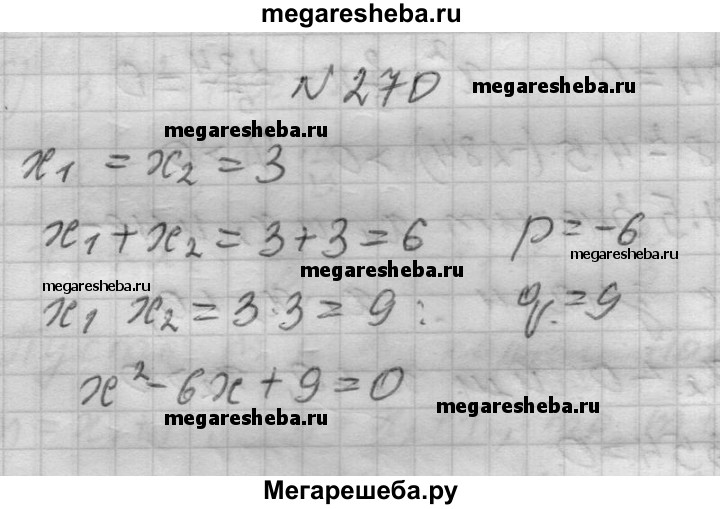 megaresheba.ru
N 270
megaresheba.ru
megaresheba.ru
x₁ = x₂ = 3
x₁ + x₂ = 3 + 3 = 6 p = -6
megaresheba.ru
megaresheba.ru
megaresheba.ru
x₁ x₂ = 3 · 3 = 9 : q. = 9
x² - 6x + 9 = 0
megaresheba.ru
megaresheba.ru
Мегарешеба.ру